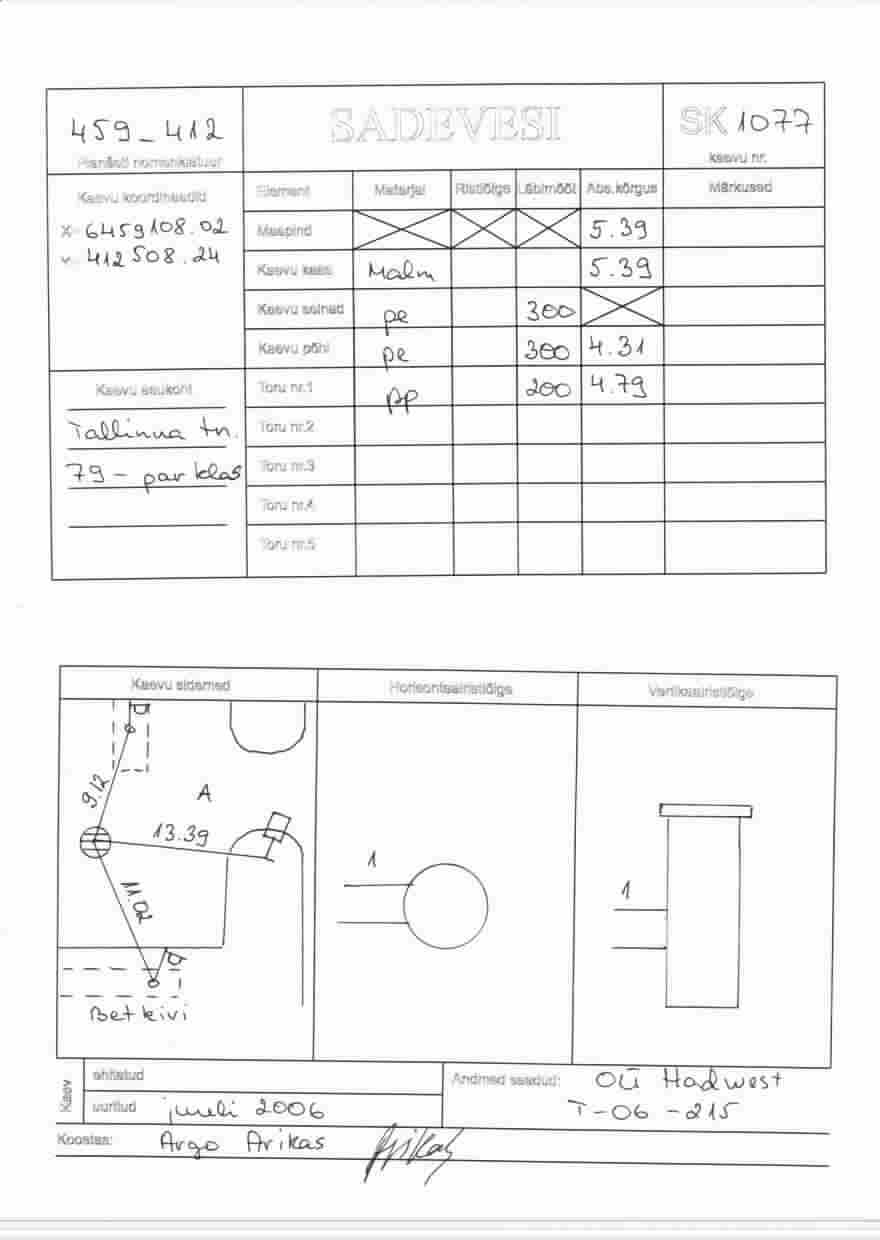 459_412
Planšeti nomenklatuur
SADEVESI
SK 1077
kaevu nr.
Kaevu koordinaadid
X- 6459108.02
Y- 412508.24
Element Materjal Ristlõige Läbimõõt Abs.kõrgus Märkused
Maapind 5.39
Kaevu kaas Malm 5.39
Kaevu seinad pe 300
Kaevu põhi pe 300 4.31
Toru nr.1 pp 200 4.79
Toru nr.2
Toru nr.3
Toru nr.4
Toru nr.5
Kaevu asukoht
Tallinna tn.
79 - parklas
Kaevu sidemed
Horisontaalristlõige
Vertikaalristlõige
9.12
A
13.39
11.02
Betkivi
1
1
Kaev
ehitatud
uuritud juuli 2006
Andmed saadud: OÜ Hadwest
T-06-215
Koostas: Argo Arikas
Arikas